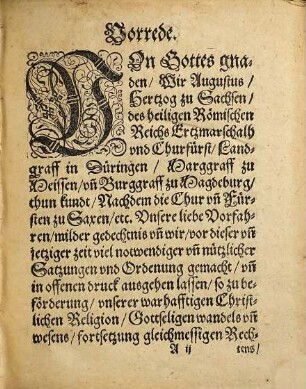 Vorrede.
VOn Gottes gna-
den / Wir Augustus /
Hertzog zu Sachsen /
des heiligen Römischen
Reichs Ertzmarschalh
vnd Churfürst / Land-
graff in Düringen / Marggraff zu
Meissen / vñ Burggraff zu Magdeburg /
thun kundt / Nachdem die Chur vñ Für-
sten zu Saxen / etc. Vnsere liebe Vorfah-
ren / milder gedechtnis vñ wir / vor dieser vñ
jetziger zeit viel notwendiger vñ nützlicher
Satzungen vnd Ordenung gemacht / vñ
in offenen druck ausgehen lassen / so zu be-
förderung / vnserer warhafftigen Christ-
lichen Religion / Gottseligen wandels vñ
wesens / fortsetzung gleichmessigen Rech-
A ij
tens /